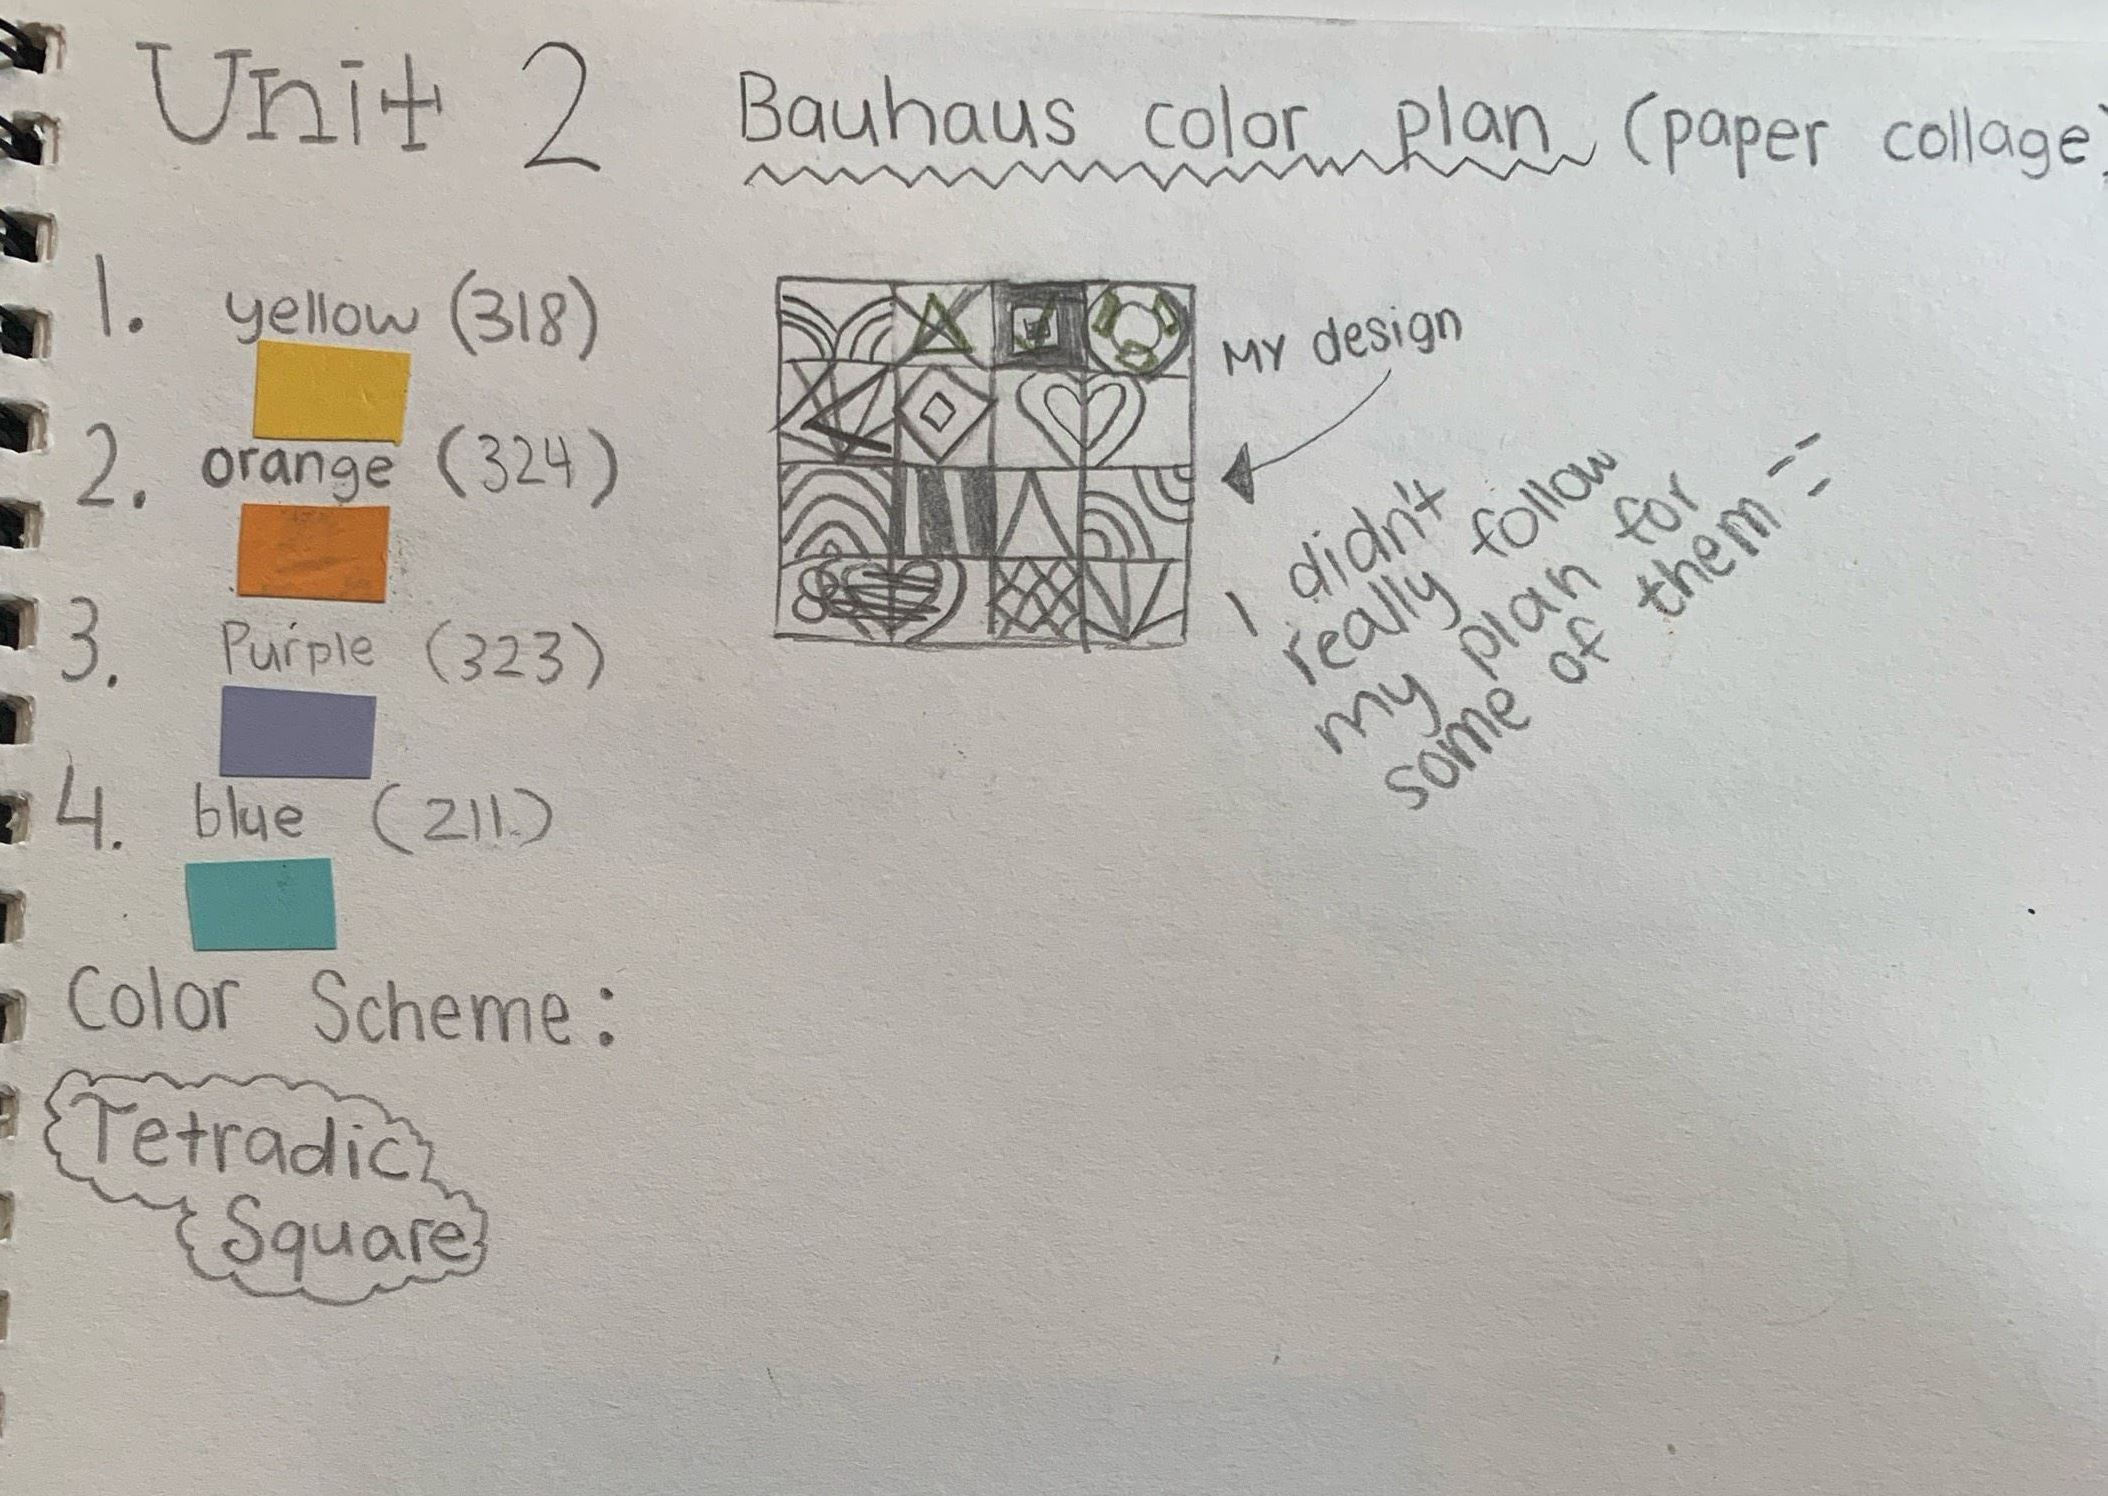 Unit 2
Bauhaus color plan (paper collage)
1. yellow (318)
2. orange (324)
3. Purple (323)
4. blue (211)
Color Scheme:
Tetradic
Square
MY design
I didn't
really follow
my plan for
some of them